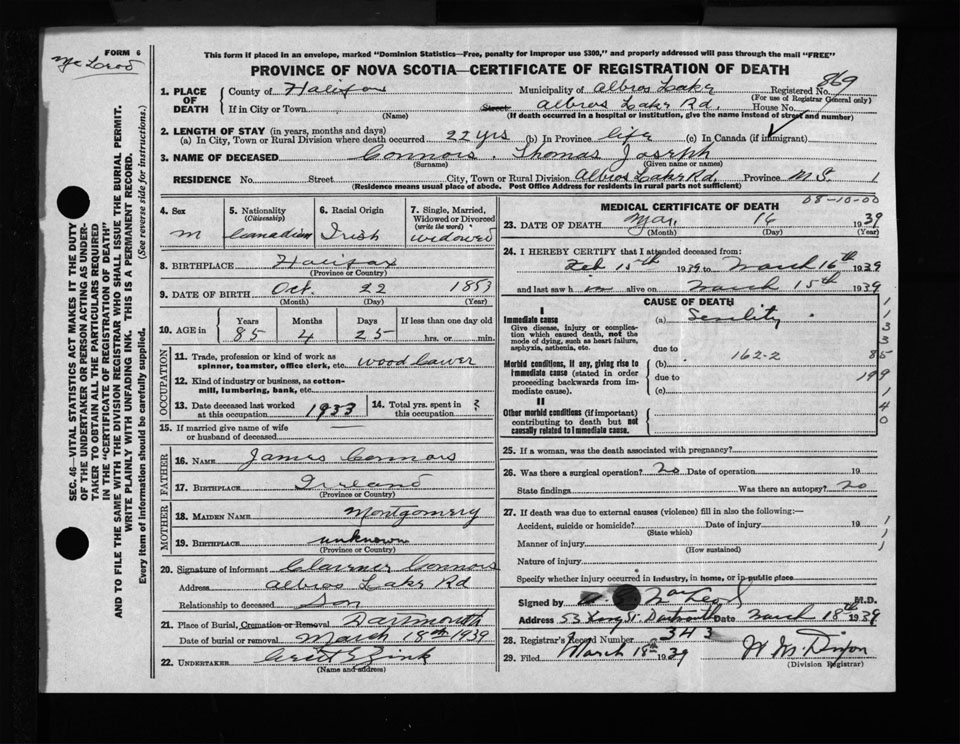 FORM 6
McLeod
This form if placed in an envelope, marked "Dominion Statistics—Free, penalty for improper use $300," and properly addressed will pass through the mail "FREE"
PROVINCE OF NOVA SCOTIA—CERTIFICATE OF REGISTRATION OF DEATH
869
1. PLACE OF DEATH
County of Halifax Municipality of Albros Lake Registered No.
(For use of Registrar General only)
If in City or Town (Name) Street Albros Lake Rd. House No.
(If death occurred in a hospital or institution, give the name instead of street and number)
2. LENGTH OF STAY (in years, months and days)
(a) In City, Town or Rural Division where death occurred 22 yrs (b) In Province life (c) In Canada (if immigrant)
3. NAME OF DECEASED Connors, Thomas Joseph
(Surname) (Given name or names)
RESIDENCE No. Street City, Town or Rural Division Albros Lake Rd. Province N.S. 1
(Residence means usual place of abode. Post Office Address for residents in rural parts not sufficient)
4. Sex
M
5. Nationality
(Citizenship)
Canadian
6. Racial Origin
Irish
7. Single, Married, Widowed or Divorced
(write the word)
widowed
8. BIRTHPLACE Halifax
(Province or Country)
9. DATE OF BIRTH Oct. 22 1853
(Month) (Day) (Year)
10. AGE in
Years Months Days If less than one day old
85 4 25 hrs. or min.
OCCUPATION
11. Trade, profession or kind of work as
spinner, teamster, office clerk, etc.
12. Kind of industry or business, as cotton-
mill, lumbering, bank, etc.
13. Date deceased last worked
at this occupation 1933
14. Total yrs. spent in
this occupation ?
15. If married give name of wife
or husband of deceased —
FATHER
16. NAME James Connors
17. BIRTHPLACE Ireland
(Province or Country)
MOTHER
18. MAIDEN NAME Montgomery
19. BIRTHPLACE unknown
(Province or Country)
20. Signature of informant Connors
Address Albros Lake Rd
Relationship to deceased Son
21. Place of Burial, Cremation or Removal Dartmouth
Date of burial or removal March 18th 1939
22. UNDERTAKER Zink
(Name and address)
MEDICAL CERTIFICATE OF DEATH
08-10-00
23. DATE OF DEATH Mar. 16 1939
(Month) (Day) (Year)
24. I HEREBY CERTIFY that I attended deceased from:
Feb 15th 1939 to March 16th 1939
and last saw him alive on March 15th 1939
CAUSE OF DEATH
I
Immediate cause
Give disease, injury or complica-
tion which caused death, not the
mode of dying, such as heart failure,
asphyxia, asthenia, etc.
(a) Senility
due to
162-2
Morbid conditions, if any, giving rise to
immediate cause (stated in order
proceeding backwards from im-
mediate cause).
(b)
due to
(c)
II
Other morbid conditions (if important)
contributing to death but not
causally related to immediate cause.
1
1
3
3
85
199
1
4
0
25. If a woman, was the death associated with pregnancy?
26. Was there a surgical operation? no Date of operation 19
State findings Was there an autopsy? no
27. If death was due to external causes (violence) fill in also the following:—
Accident, suicide or homicide? Date of injury 19
(State which)
Manner of injury
(How sustained)
Nature of injury
Specify whether injury occurred in industry, in home, or in public place
1
1
1
Signed by MacLeod M.D.
Address 53 King St. Dartmouth Date March 18th 1939
28. Registrar's Record Number 343
29. Filed March 18th 1939
(Division Registrar)
SEC. 46—VITAL STATISTICS ACT MAKES IT THE DUTY
OF THE UNDERTAKER OR PERSON ACTING AS UNDER-
TAKER TO OBTAIN ALL THE PARTICULARS REQUIRED
IN THE "CERTIFICATE OF REGISTRATION OF DEATH"
AND TO FILE THE SAME WITH THE DIVISION REGISTRAR WHO SHALL ISSUE THE BURIAL PERMIT.
WRITE PLAINLY WITH UNFADING INK. THIS IS A PERMANENT RECORD.
Every item of information should be carefully supplied. (See reverse side for instructions.)